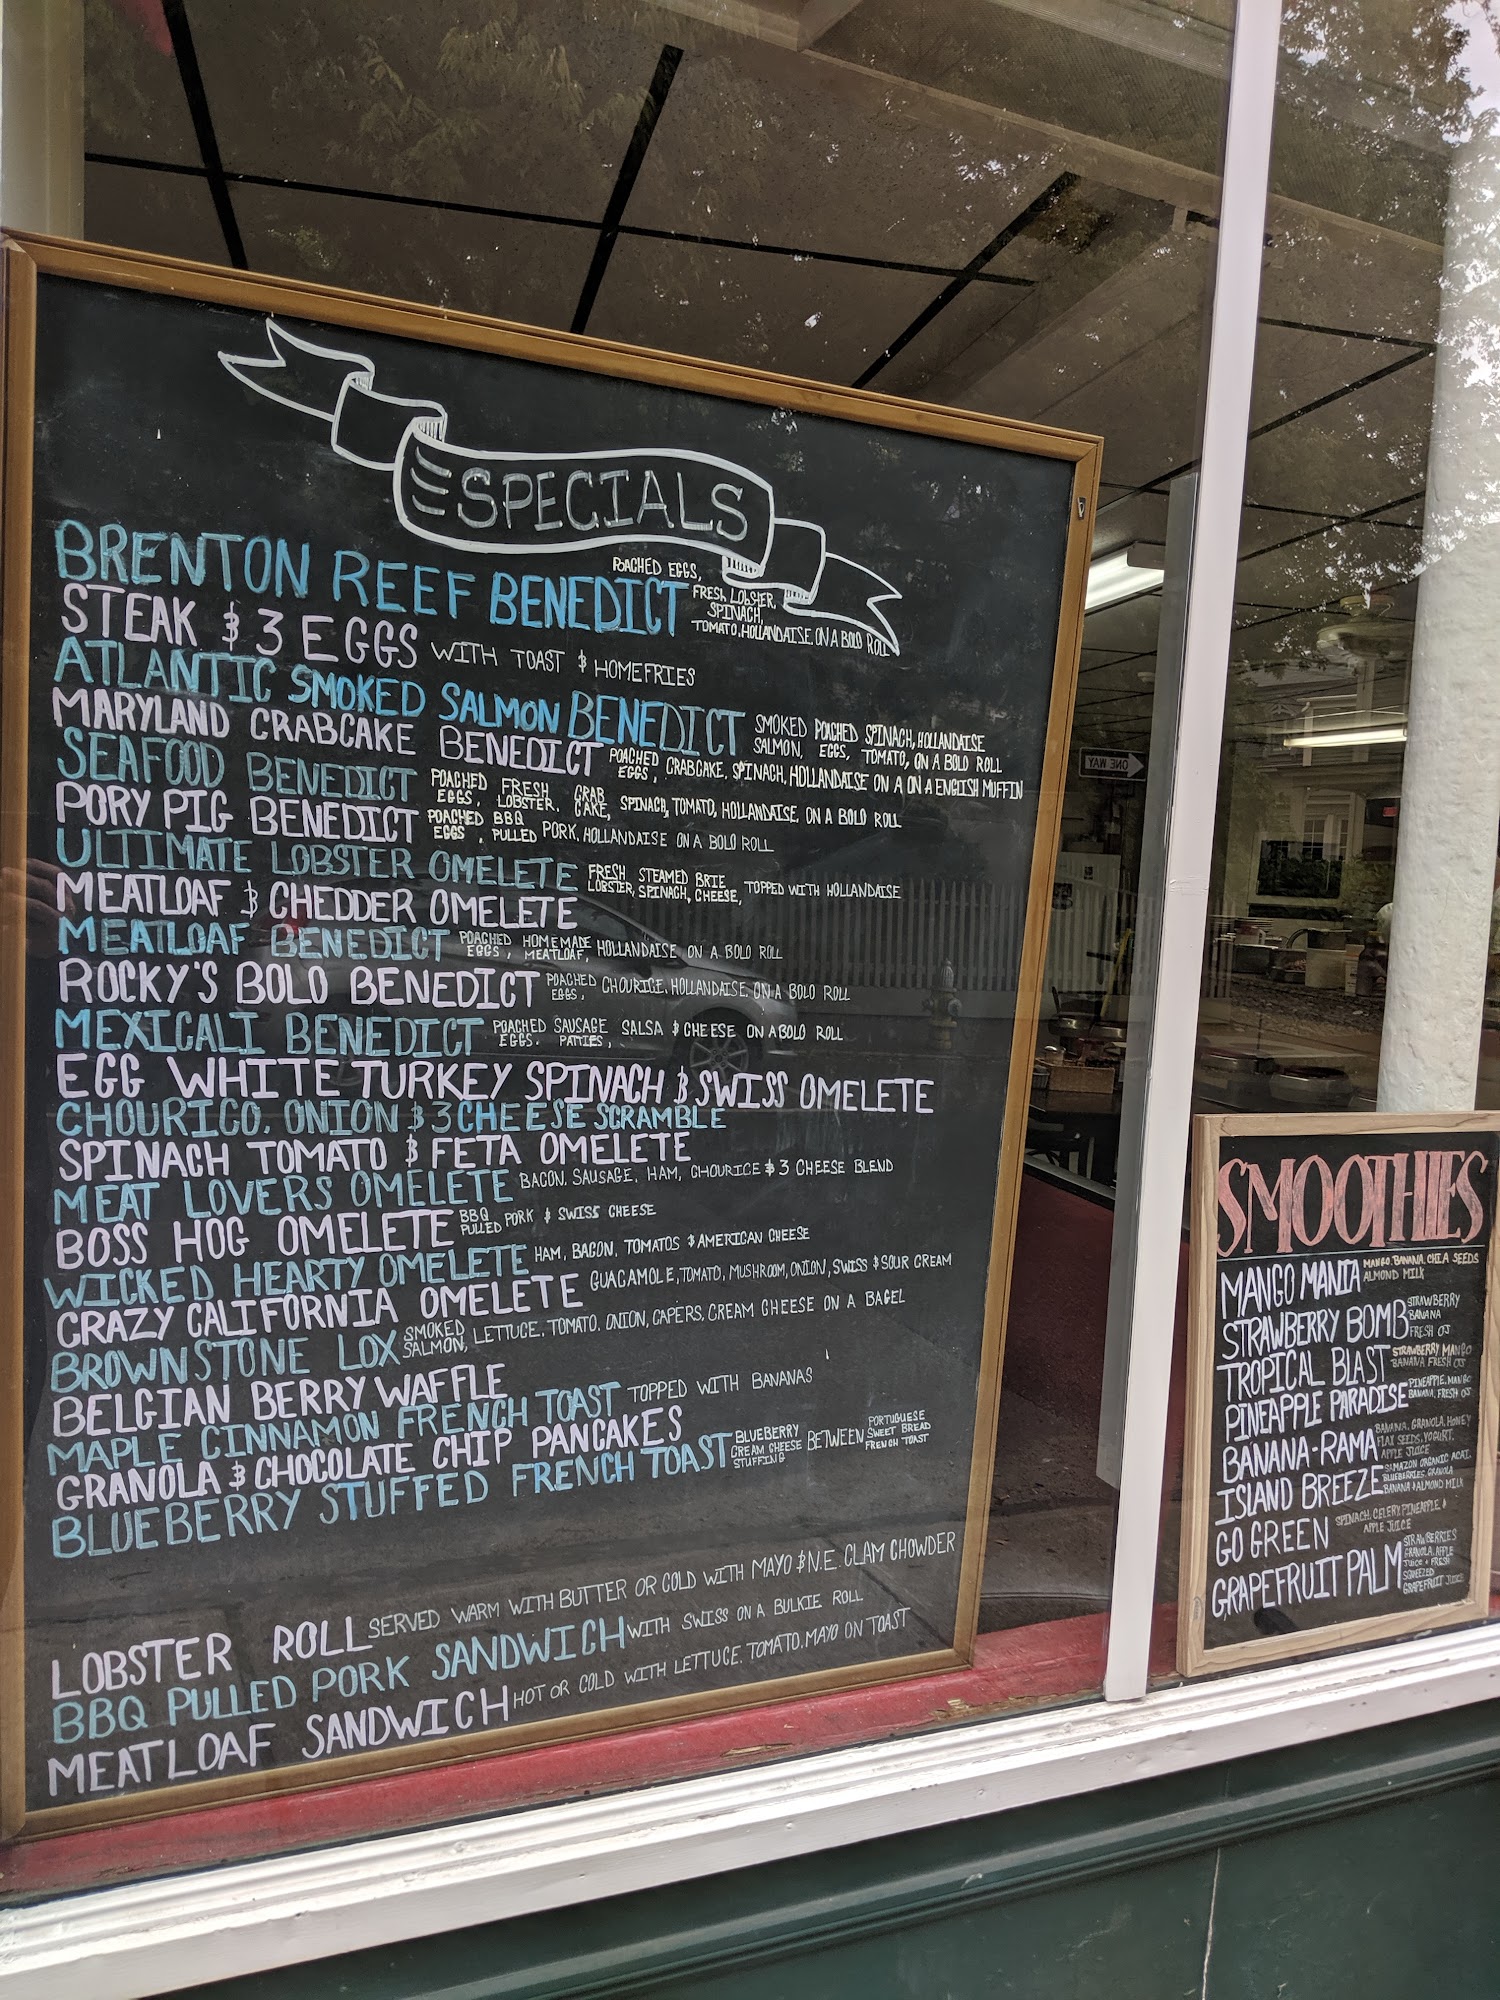 SPECIALS
BRENTON REEF BENEDICT POACHED EGGS, FRESH LOBSTER, SPINACH, TOMATO, HOLLANDAISE, ON A BOLO ROLL
STEAK & 3 EGGS WITH TOAST & HOMEFRIES
ATLANTIC SMOKED SALMON BENEDICT SMOKED SALMON, POACHED EGGS, SPINACH, HOLLANDAISE TOMATO, ON A BOLO ROLL
MARYLAND CRABCAKE BENEDICT POACHED EGGS, CRABCAKE, SPINACH, HOLLANDAISE ON A ON A ENGLISH MUFFIN
SEAFOOD BENEDICT POACHED EGGS, FRESH LOBSTER, CRAB CAKE, SPINACH, TOMATO, HOLLANDAISE, ON A BOLO ROLL
PORY PIG BENEDICT POACHED EGGS, BBQ PULLED PORK, HOLLANDAISE ON A BOLO ROLL
ULTIMATE LOBSTER OMELETE FRESH LOBSTER, STEAMED SPINACH, BRIE CHEESE, TOPPED WITH HOLLANDAISE
MEATLOAF & CHEDDER OMELETE
MEATLOAF BENEDICT POACHED EGGS, HOMEMADE MEATLOAF, HOLLANDAISE ON A BOLO ROLL
ROCKY'S BOLO BENEDICT POACHED EGGS, CHOURICE, HOLLANDAISE, ON A BOLO ROLL
MEXICALI BENEDICT POACHED EGGS, SAUSAGE PATTIES, SALSA & CHEESE ON A BOLO ROLL
EGG WHITE TURKEY SPINACH & SWISS OMELETE
CHOURICO, ONION & 3 CHEESE SCRAMBLE
SPINACH TOMATO & FETA OMELETE
MEAT LOVERS OMELETE BACON, SAUSAGE, HAM, CHOURICE & 3 CHEESE BLEND
BOSS HOG OMELETE BBQ PULLED PORK & SWISS CHEESE
WICKED HEARTY OMELETE HAM, BACON, TOMATOS & AMERICAN CHEESE
CRAZY CALIFORNIA OMELETE GUACAMOLE, TOMATO, MUSHROOM, ONION, SWISS & SOUR CREAM
BROWNSTONE LOX SMOKED SALMON, LETTUCE, TOMATO, ONION, CAPERS, CREAM CHEESE ON A BAGEL
BELGIAN BERRY WAFFLE
MAPLE CINNAMON FRENCH TOAST TOPPED WITH BANANAS
GRANOLA & CHOCOLATE CHIP PANCAKES
BLUEBERRY STUFFED FRENCH TOAST BLUEBERRY CREAM CHEESE STUFFING BETWEEN PORTUGUESE SWEET BREAD FRENCH TOAST
LOBSTER ROLL SERVED WARM WITH BUTTER OR COLD WITH MAYO & N.E. CLAM CHOWDER
BBQ PULLED PORK SANDWICH WITH SWISS ON A BULKIE ROLL
MEATLOAF SANDWICH HOT OR COLD WITH LETTUCE, TOMATO, MAYO ON TOAST
ONE WAY
SMOOTHIES
MANGO MANIA MANGO, BANANA, CHIA SEEDS ALMOND MILK
STRAWBERRY BOMB STRAWBERRY BANANA FRESH OJ
TROPICAL BLAST STRAWBERRY MANGO BANANA FRESH OJ
PINEAPPLE PARADISE PINEAPPLE, MANGO BANANA, FRESH OJ
BANANA-RAMA BANANA, GRANOLA, HONEY FLAX SEEDS, YOGURT, APPLE JUICE
ISLAND BREEZE SAMAZON ORGANIC ACAI, BLUEBERRIES, GRANOLA BANANA & ALMOND MILK
GO GREEN SPINACH, CELERY, PINEAPPLE & APPLE JUICE
GRAPEFRUIT PALM STRAWBERRIES GRANOLA, APPLE JUICE & FRESH SQUEEZED GRAPEFRUIT JUICE